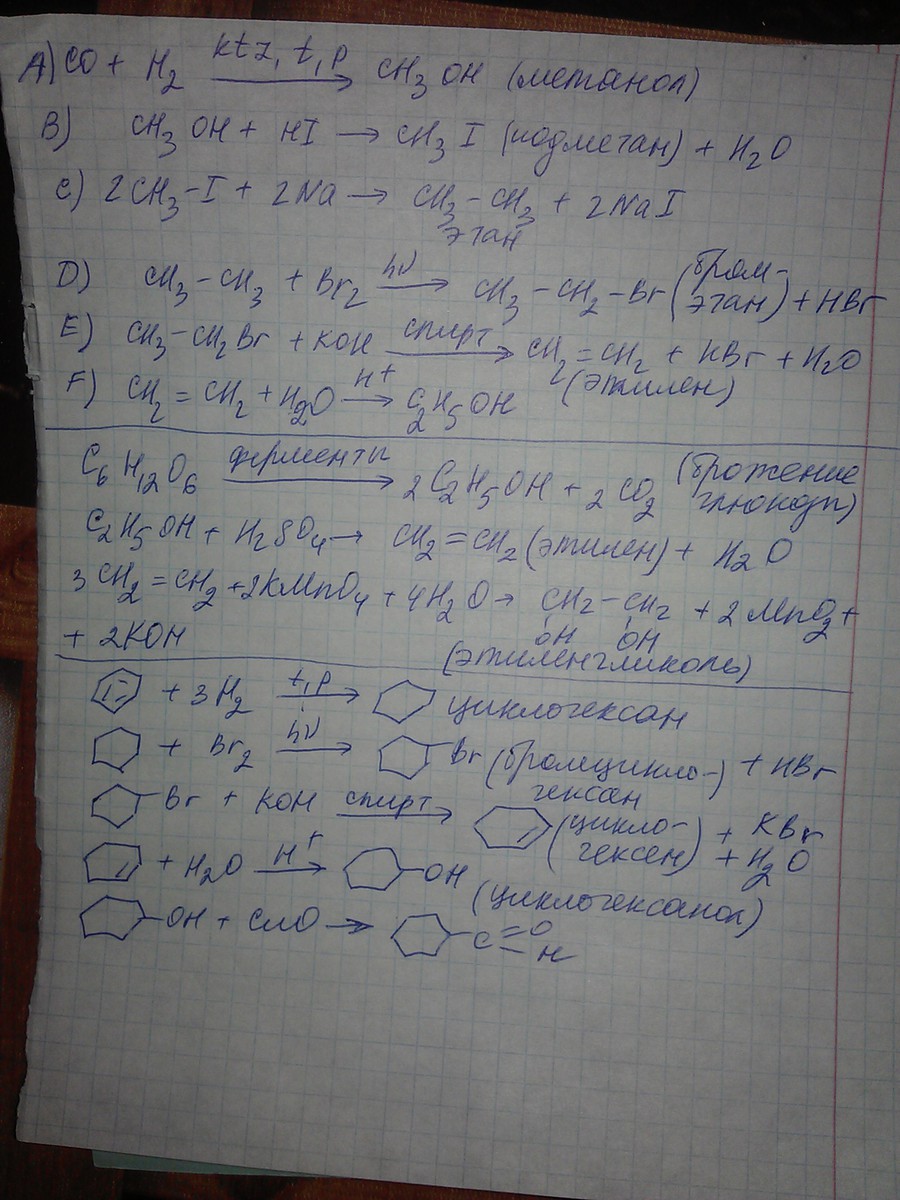 A) CO + H₂ ktz, t, p → CH₃OH (метанол)
B) CH₃OH + HI → CH₃I (иодметан) + H₂O
C) 2CH₃-I + 2Na → CH₃-CH₃ + 2NaI
этан
D) CH₃-CH₃ + Br₂ hν → CH₃-CH₂-Br (бром-
этан) + HBr
E) CH₃-CH₂Br + KOH спирт → CH₂=CH₂ + KBr + H₂O
(этилен)
F) CH₂=CH₂ + H₂O H⁺ → C₂H₅OH
C₆H₁₂O₆ ферменты → 2C₂H₅OH + 2CO₂ (брожение
глюкозы)
C₂H₅OH + H₂SO₄ → CH₂=CH₂ (этилен) + H₂O
3CH₂=CH₂ + 2KMnO₄ + 4H₂O → CH₂-CH₂ + 2MnO₂ +
OH OH
+ 2KOH (этиленгликоль)
+ 3H₂ t, p → циклогексан
+ Br₂ hν → Br (бромцикло-) + HBr
гексан
Br + KOH спирт → (цикло- + KBr
гексен) + H₂O
+ H₂O H⁺ → OH
(циклогексанол)
OH + CuO → C=O
H